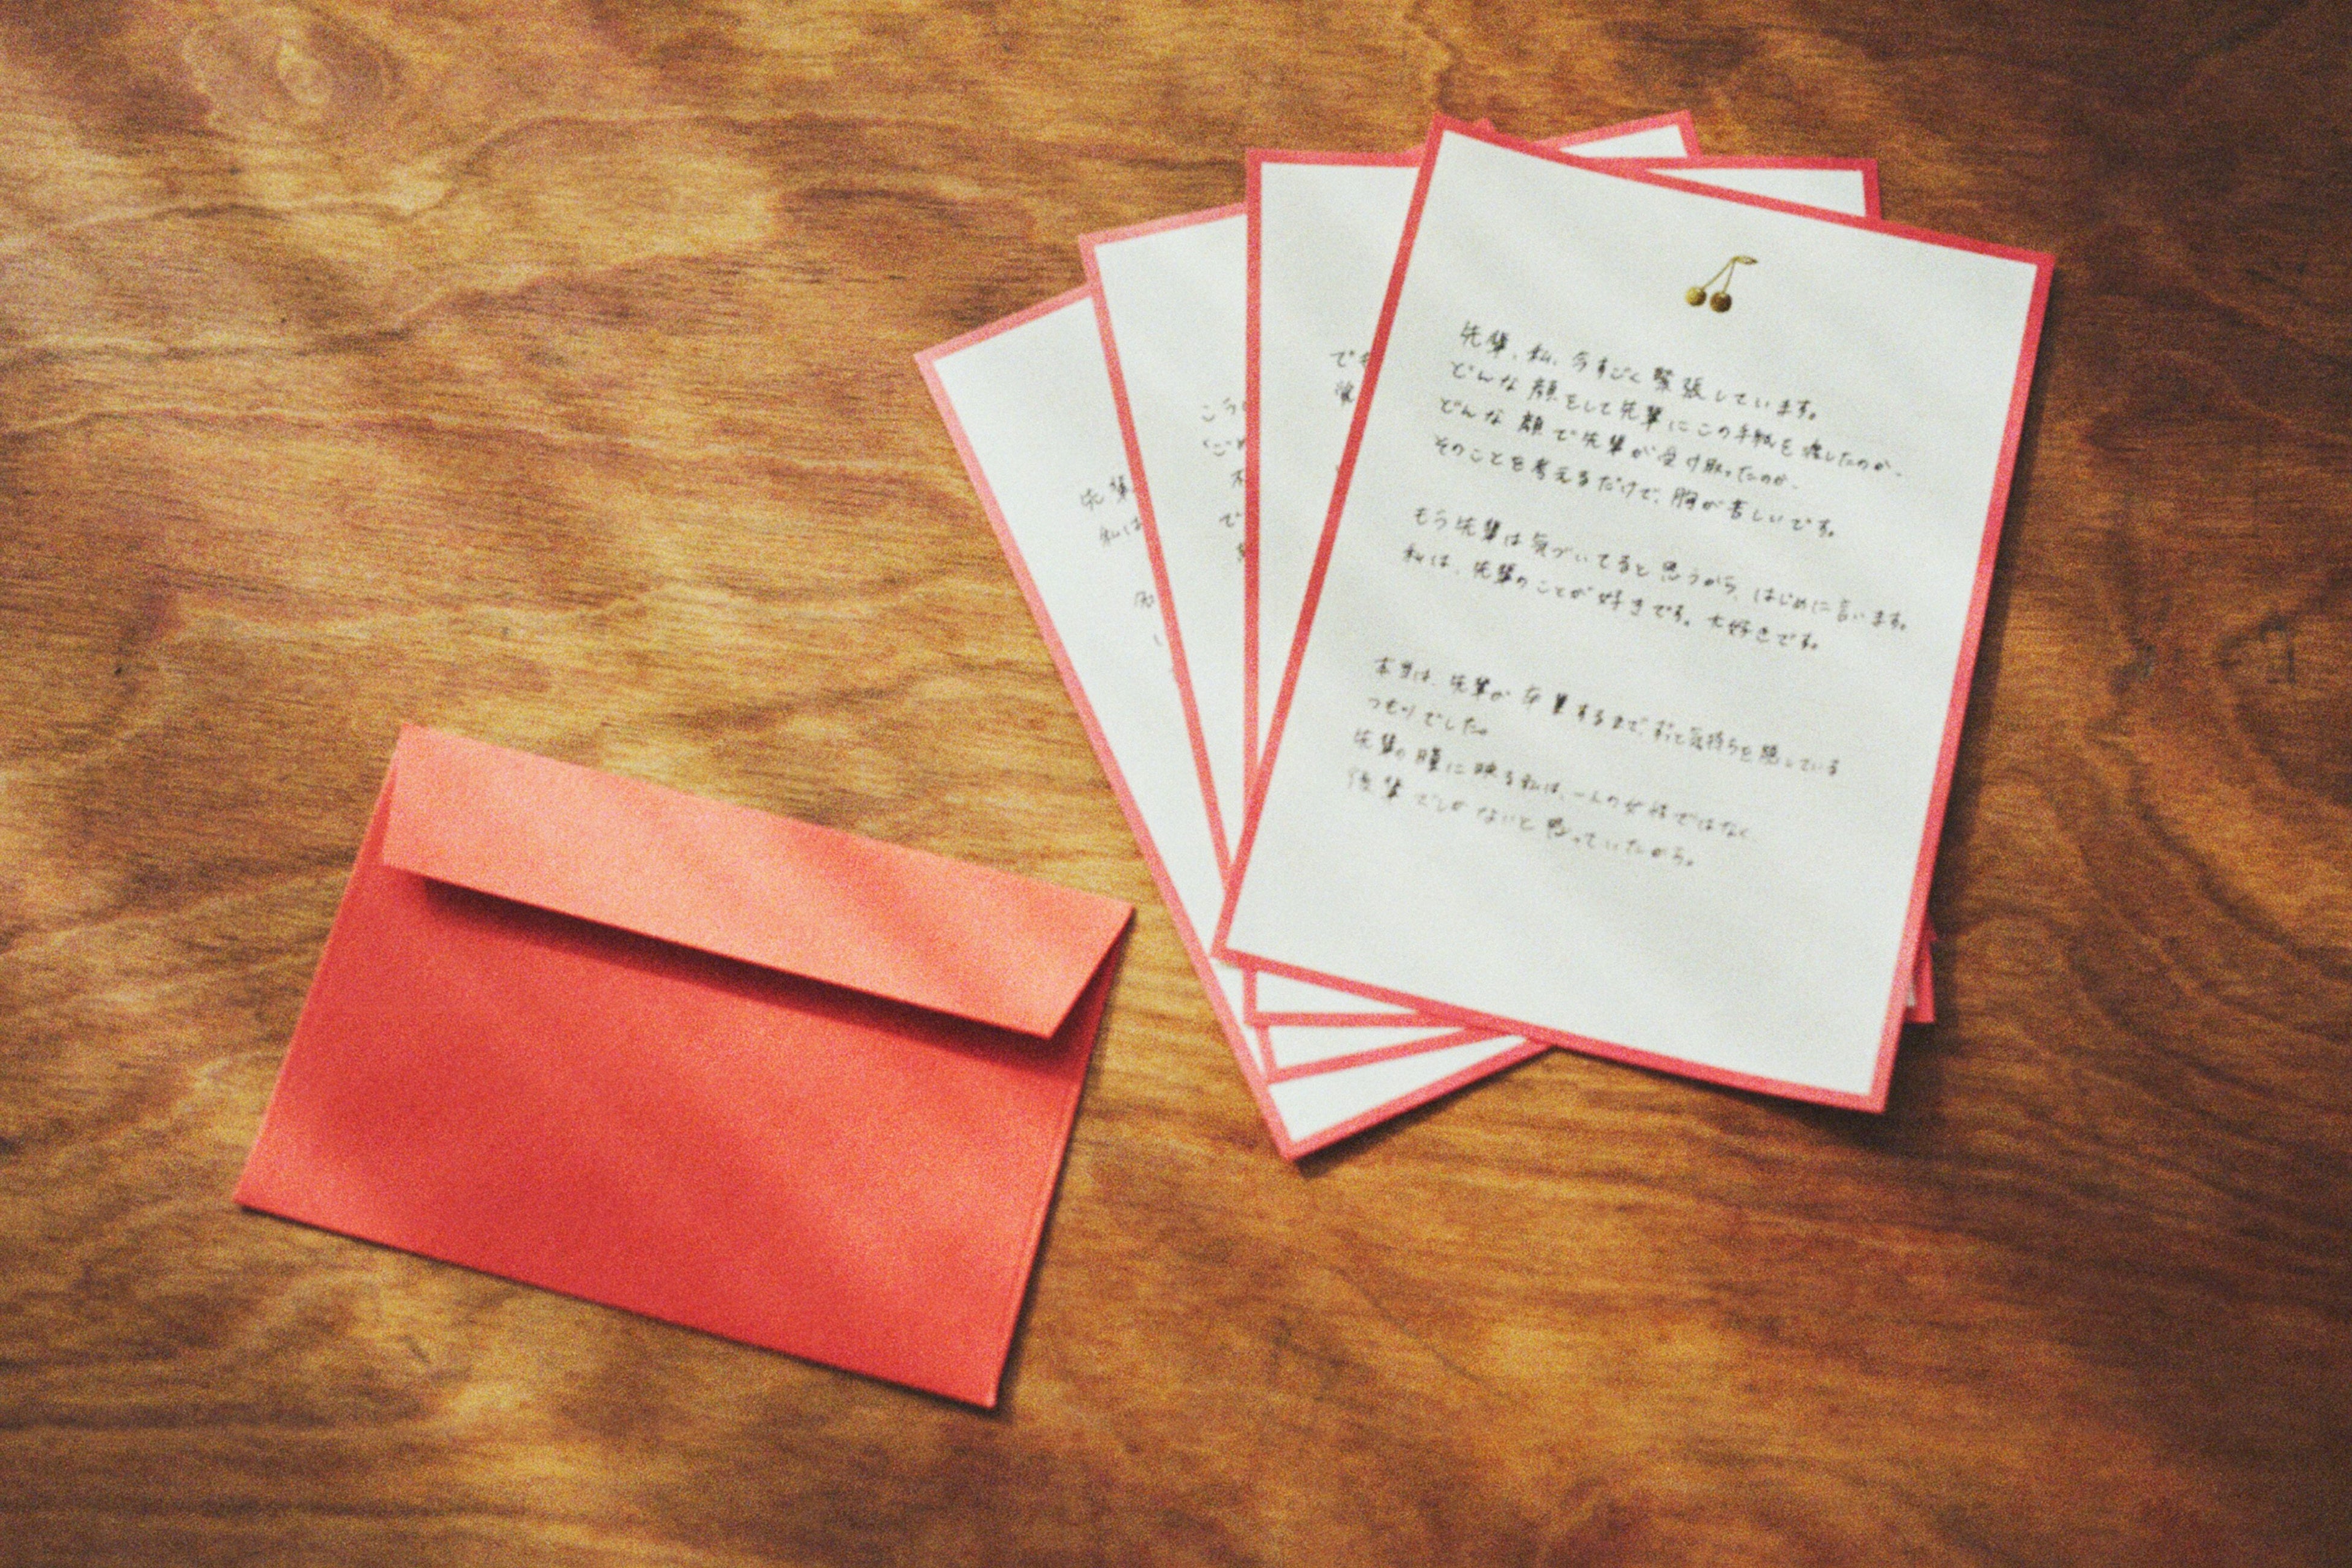 先輩、私、今すごく緊張しています。
どんな顔をして先輩にこの手紙を渡したのか、
どんな顔で先輩が受け取ったのか、
そのことを考えるだけで、胸が苦しいです。
もう先輩は気づいてると思うから、はじめに言います。
私は、先輩のことが好きです。大好きです。
本当は、先輩が卒業するまで、ずっと気持ちを隠している
つもりでした。
先輩の瞳に映る私は、一人の女性ではなく、
後輩でしかないと思っていたから。
でも
こう
先輩
私は